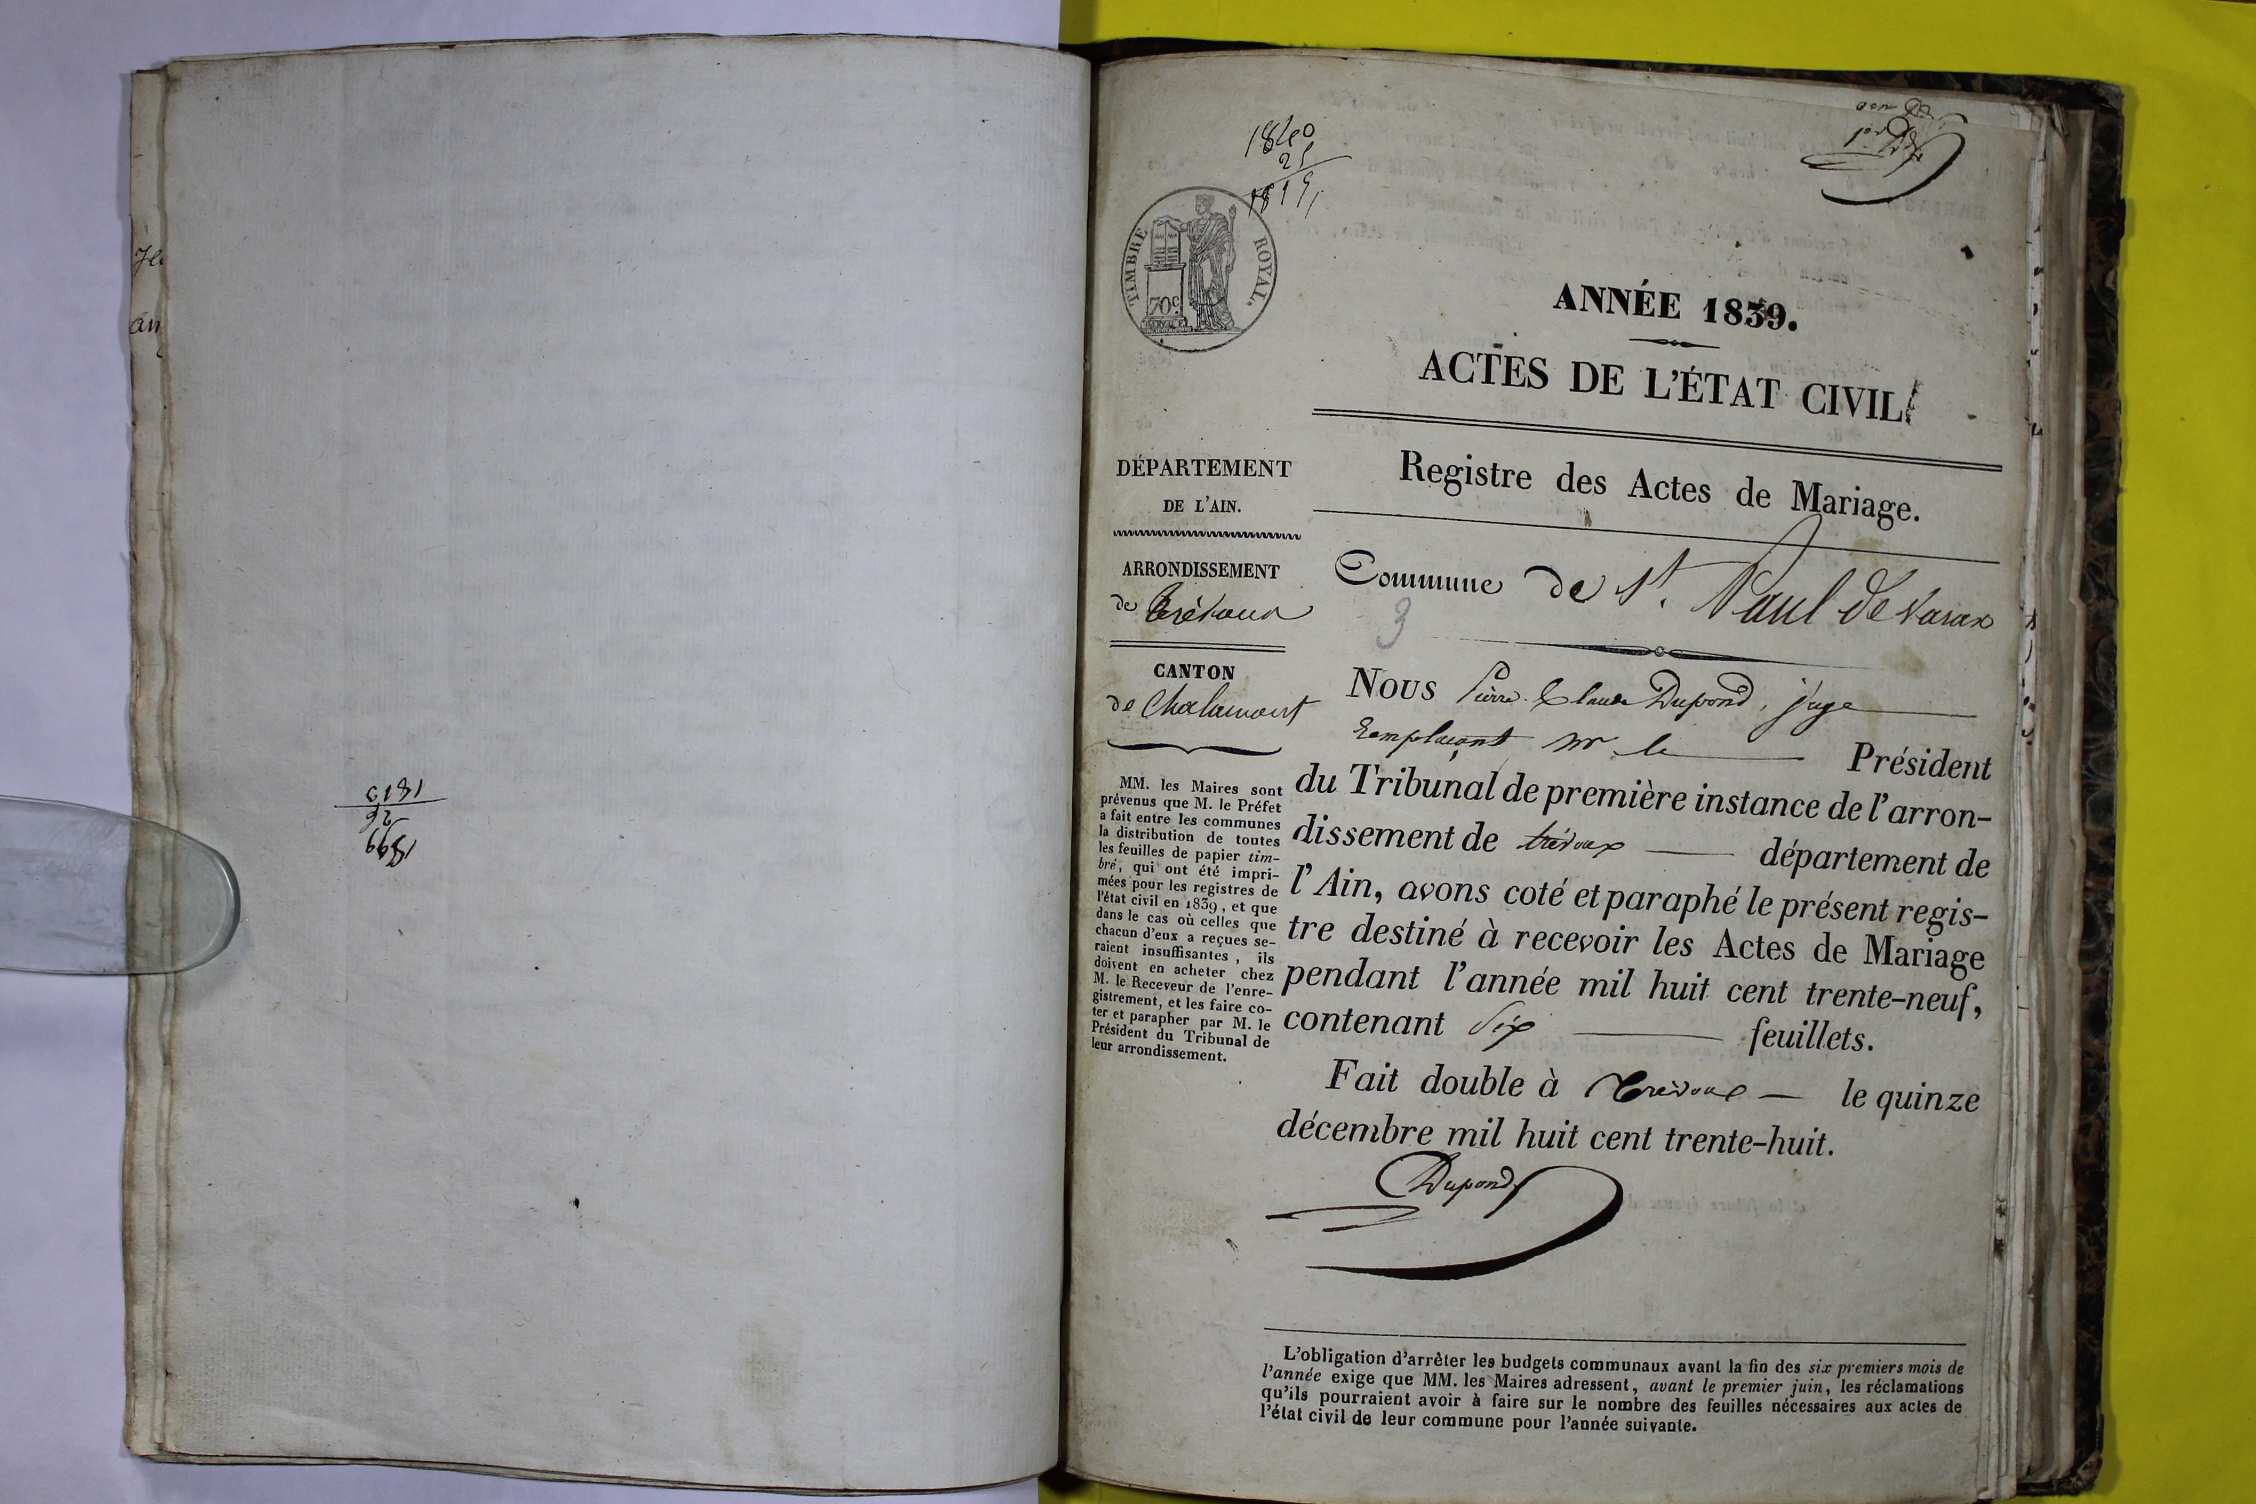 1840
25
1815
TIMBRE ROYAL.
70c
ANNÉE 1839.
ACTES DE L'ÉTAT CIVIL.
DÉPARTEMENT
DE L'AIN.
ARRONDISSEMENT
de Trévoux
CANTON
de Chalamont
MM. les Maires sont
prévenus que M. le Préfet
a fait entre les communes
la distribution de toutes
les feuilles de papier tim-
bré, qui ont été impri-
mées pour les registres de
l'état civil en 1839, et que
dans le cas où celles que
chacun d'eux a reçues se-
raient insuffisantes, ils
doivent en acheter chez
M. le Receveur de l'enre-
gistrement, et les faire co-
ter et parapher par M. le
Président du Tribunal de
leur arrondissement.
Registre des Actes de Mariage.
Commune de St. Paul de Varax
3
Nous Pierre Claude Dupond, juge
Remplaçant mr le Président
du Tribunal de première instance de l'arron-
dissement de trévoux département de
l'Ain, avons coté et paraphé le présent regis-
tre destiné à recevoir les Actes de Mariage
pendant l'année mil huit cent trente-neuf,
contenant Six feuillets.
Fait double à Trévoux le quinze
décembre mil huit cent trente-huit.
Dupond
L'obligation d'arrêter les budgets communaux avant la fin des six premiers mois de
l'année exige que MM. les Maires adressent, avant le premier juin, les réclamations
qu'ils pourraient avoir à faire sur le nombre des feuilles nécessaires aux actes de
l'état civil de leur commune pour l'année suivante.